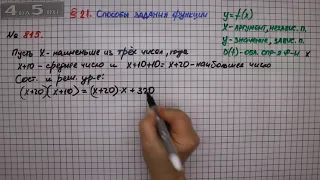 4 из 5
§ 21. Способы задания функции
№ 815.
y = f(x)
x - аргумент, независ. п.
y - значение, завис. п.
D(f) - обл. опр-я ф-и x
Пусть x - наименьшее из трёх чисел, тогда
x+10 - среднее число и x+10+10 = x+20 - наибольшее число
Сост. и реш. ур-е:
(x+20)(x+10) = (x+20)·x + 320